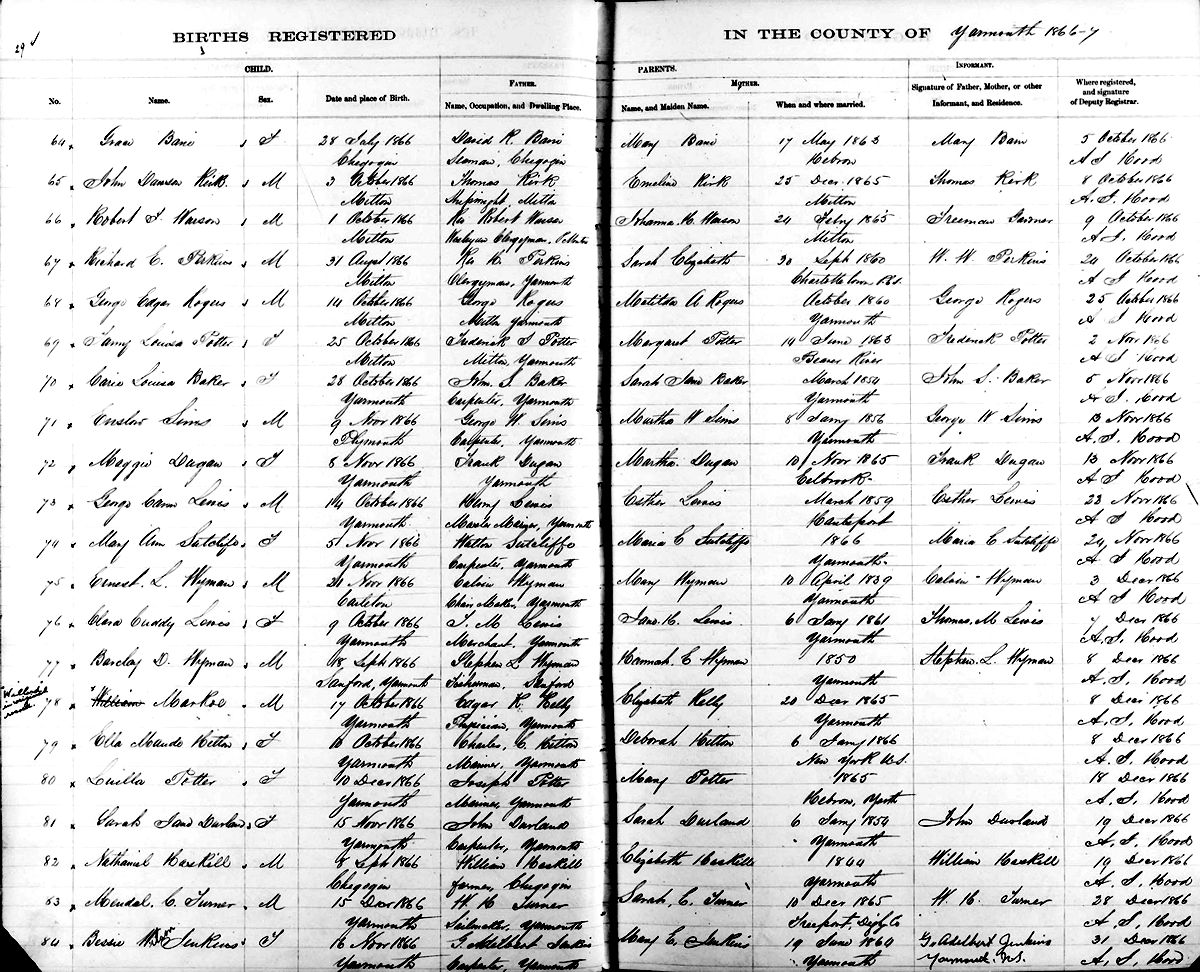 29
BIRTHS REGISTERED
IN THE COUNTY OF Yarmouth 1866-7
CHILD.
PARENTS.
INFORMANT.
FATHER.
MOTHER.
No. Name. Sex. Date and place of Birth. Name, Occupation, and Dwelling Place. Name, and Maiden Name. When and where married. Signature of Father, Mother, or other Informant, and Residence. Where registered, and signature of Deputy Registrar.
64 Grace Bain F 28 July 1866 David R. Bain Mary Bain 17 May 1863 Mary Bain 5 October 1866
Chegogin Seaman, Chegogin Hebron A. J. Hood
65 John Dawson Kirk M 3 October 1866 Thomas Kirk Emeline Kirk 25 Decr 1865 Thomas Kirk 8 October 1866
Milton Shipwright, Milton Milton A. J. Hood
66 Robert M 1 October 1866 Rev Robert Johanna 24 Feby 1865 Freeman Gardner 9 October 1866
Milton Wesleyan Clergyman, Milton A. J. Hood
67 Richard C. Perkins M 31 Augst 1866 Perkins Sarah Elizabeth 30 Sept 1860 W. W. Perkins 24 October 1866
Milton Clergyman, Yarmouth Charlotte Town A J Hood
68 George Edgar Rogers M 14 October 1866 George Rogers Matilda A Rogers October 1860 George Rogers 25 October 1866
Milton Milton Yarmouth Yarmouth A J Hood
69 Louisa Potter F 25 October 1866 Frederick J Potter Margaret Potter 14 June 1863 Frederick Potter 2 Novr 1866
Milton Milton, Yarmouth Bear River A J Hood
70 Louisa Baker F 28 October 1866 John S. Baker Sarah Jane Baker March 1854 John S. Baker 5 Novr 1866
Yarmouth Carpenter, Yarmouth Yarmouth A J. Hood
71 Enslow Sims M 9 Novr 1866 George W. Sims Martha W Sims 8 Jany 1856 George W Sims 13 Novr 1866
Plymouth Carpenter, Yarmouth Yarmouth A. J. Hood
72 Maggie Dugan F 8 Novr 1866 Frank Dugan Martha Dugan 10 Novr 1865 Frank Dugan 13 Novr 1866
Yarmouth Yarmouth A J Hood
73 George Cann Lewis M 14 October 1866 Henry Lewis Esther Lewis March 1859 Esther Lewis 23 Novr 1866
Yarmouth Master Mariner, Yarmouth Hantsport A J Hood
74 Mary Ann Sutcliffe F 5 Novr 1866 Sutcliffe Maria C Sutcliffe 1866 Maria C Sutcliffe 24 Novr 1866
Yarmouth Carpenter, Yarmouth Yarmouth A J Hood
75 Ernest L. Wyman M 21 Novr 1866 Calvin Wyman Mary Wyman 10 April 1839 Calvin Wyman 3 Decr 1866
Carleton Chair Maker, Yarmouth Yarmouth A J Hood
76 Clara Cuddy Lewis F 9 October 1866 T. M. Lewis Jane H. Lewis 6 Jany 1861 Thomas M Lewis 7 Decr 1866
Yarmouth Merchant, Yarmouth Yarmouth A. J. Hood
77 Barclay D. Wyman M 18 Sept 1866 Stephen L. Wyman Hannah E Wyman 1850 Stephen L. Wyman 8 Decr 1866
Sanford, Yarmouth Fisherman, Sanford Yarmouth A. J. Hood
78 William Markoe M 17 October 1866 Edgar K. Kelly Elizabeth Kelly 20 Decr 1865 8 Decr 1866
Yarmouth Physician, Yarmouth Yarmouth A. J. Hood
79 Ella Maude Hilton F 10 October 1866 Charles C. Hilton Deborah Hilton 6 Jany 1866 8 Decr 1866
Yarmouth Mariner, Yarmouth New York U.S. A. J. Hood
80 Luilla Potter F 10 Decr 1866 Joseph Potter Mary Potter 1865 18 Decr 1866
Yarmouth Mariner, Yarmouth Hebron, Yarth A. J. Hood
81 Sarah Jane Durland F 15 Novr 1866 John Durland Sarah Durland 6 Jany 1854 John Durland 19 Decr 1866
Yarmouth Carpenter, Yarmouth Yarmouth A. J. Hood
82 Nathaniel Haskell M 8 Sept 1866 William Haskell Elizabeth Haskell 1844 William Haskell 19 Decr 1866
Chegogin Farmer, Chegogin Yarmouth A. J. Hood
83 Mendal C. Turner M 15 Decr 1866 W. H. Turner Sarah C. Turner 10 Decr 1865 W. H. Turner 28 Decr 1866
Yarmouth Sailmaker, Yarmouth Freeport, Digby Co A. J. Hood
84 Bessie Jenkins F 16 Novr 1866 Jenkins Mary E. Jenkins 19 June 1864 G. Adelbert Jenkins 31 Decr 1866
Yarmouth Carpenter, Yarmouth Yarmouth Yarmouth, N.S. A. J. Hood